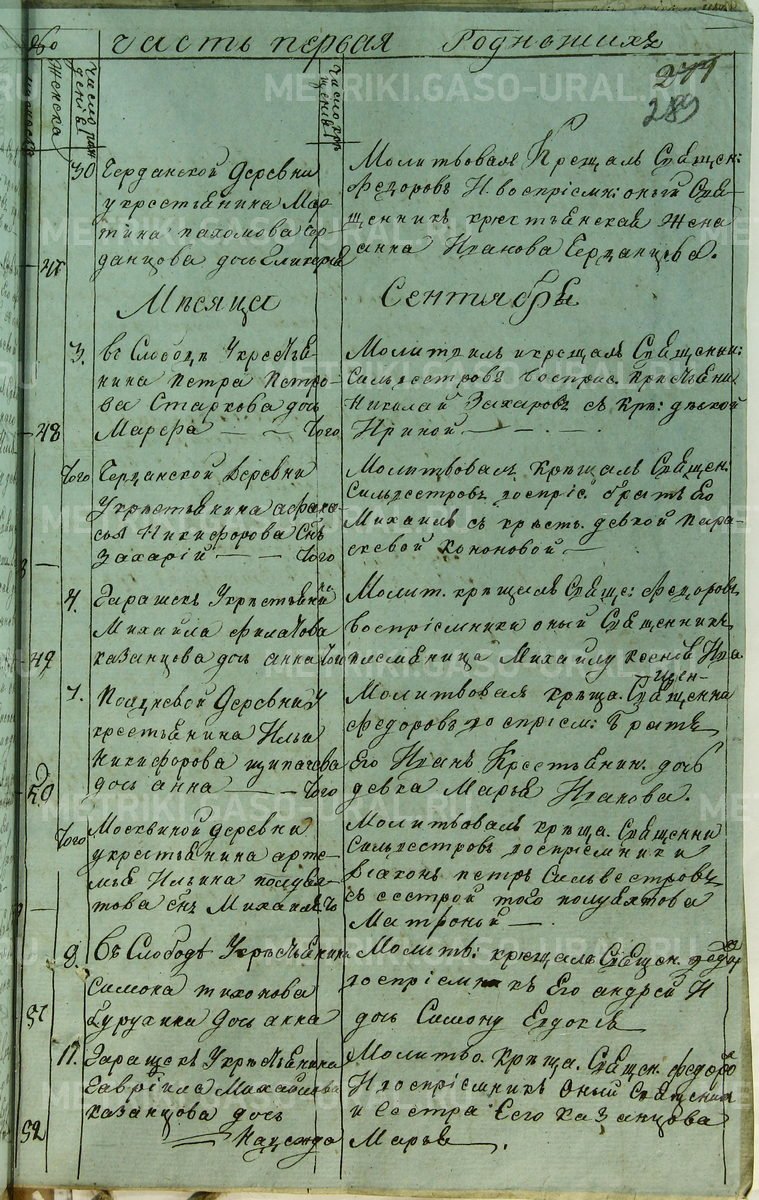 Часть первая Родившихъ
279
289
Женска
число рож
денія
число кре
щенія
30 Берданской деревни
у крестьянина Мар
тина Пахомова Бер
данцова дочь Гликерія
47
Молитвовалъ Крещалъ Священ:
Федоровъ И воспріемн: оный Свя-
щенникъ крестьянская жена
анна Иванова Берданцова.
Месяца Сентябрь
3. въ Слободе У крестья-
нина Петра Петро-
ва Старкова дочь
48 Марѳа — — того
Молитвилъ и крещалъ Священни:
Сильвестровъ воспріе. крестьяни
Николай Захаровъ съ кре: девкой
Ириной — — . —
того Берданской Деревни
У крестьянина афана-
сья Никифорова сынъ
Захарій — — того
Молитвовалъ крещалъ Священ:
Сильвестровъ воспріе. братъ Его
Михаилъ съ кресть. девкой Пара-
скевой Кононовой —
4. Зарашскъ У крестьяни
Михайла Филатова
49 казанцова дочь анна того
Молит. крещалъ Свяще: Федоровъ
воспріемники оный Священникъ
племяница Михайлу Ива.
7. Полдневой Деревни У
крестьянина Ильи
Никифорова щипачева
50 дочь анна — — того
Молитвовалъ креща. Священни
Федоровъ воспріем: братъ
Его Иванъ Крестьянин. дочь
девка Марья Иванова.
того Москвиной деревни
у крестьянина арте-
мья Ильина полуек-
това сынъ Михаилъ то
Молитвовалъ креща. Священни
Сильвестровъ воспріемники
Дьяконъ петръ Сильвестровъ
съ сестрой того полуектова
Матроной — .
8. Въ Слободе У крестьянина
Симона тихонова
51 дочь анна
Молитв: крещалъ Священ. Федор
воспріемникъ Его андрей И
дочь Симону Евдокея
11. Зарашскъ У крестьянина
Гавріила Михайлова
казанцова дочь
52 — Надежда
Молитво. креща. Священ. Федоро
И воспріемникъ Оный Священни
и сестра Его казанцова
Марья .